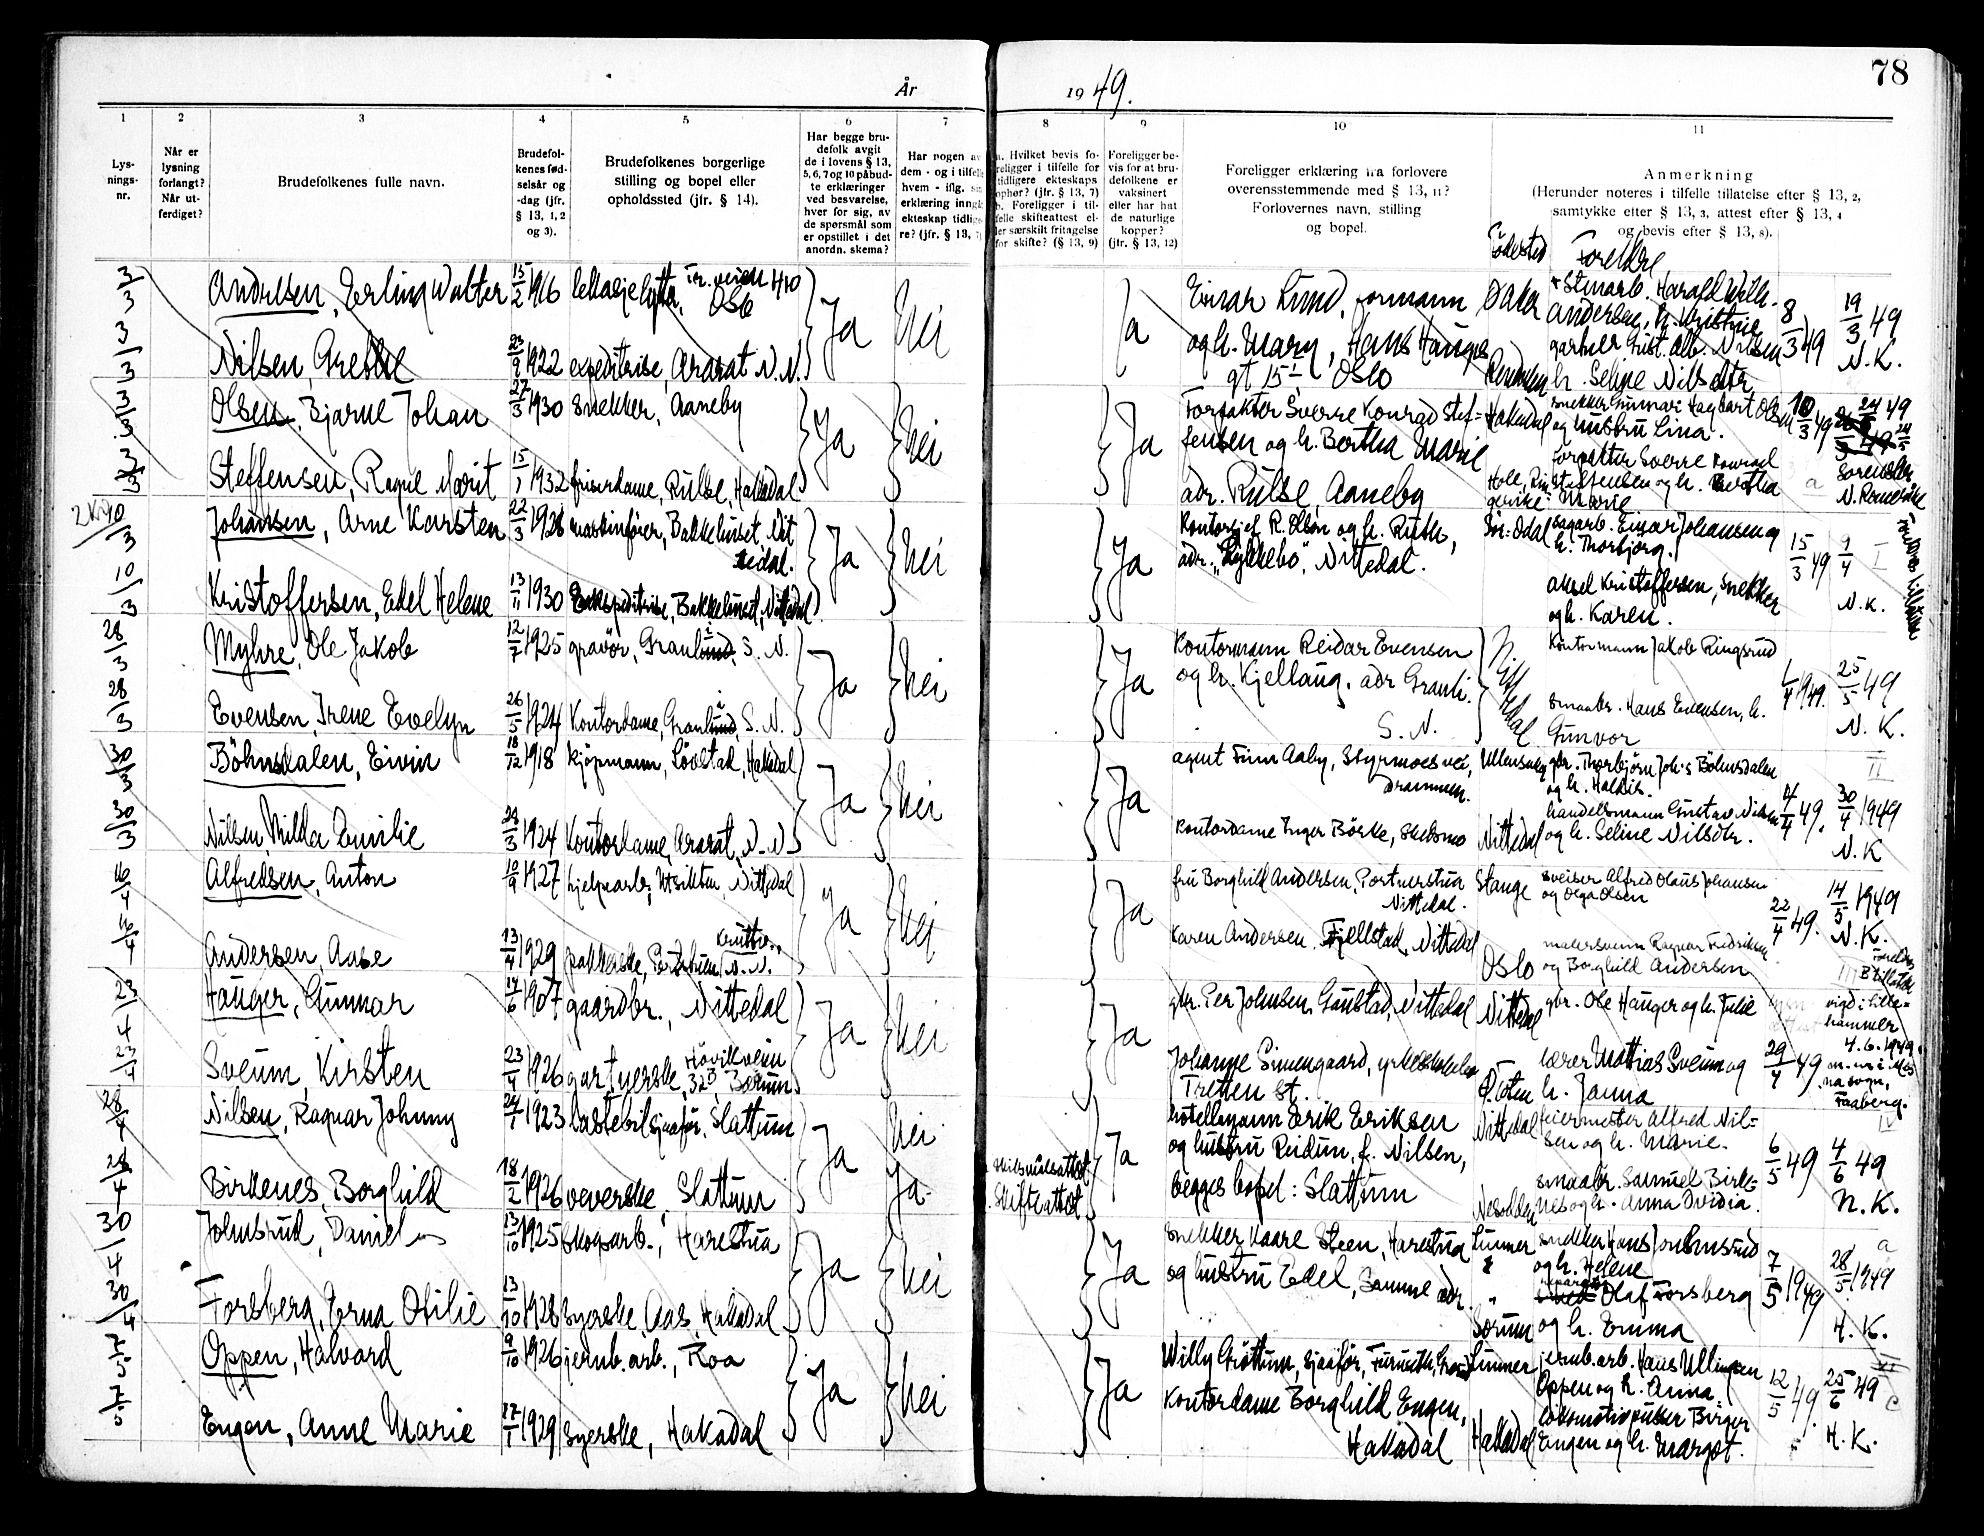 78
År 1949.
1 2 3 4 5 6 7 8 9 10 11
Lysningsnr.
Når er lysning forlangt? Når utferdiget?
Brudefolkenes fulle navn.
Brudefolkenes fødselsår og -dag (jfr. § 13, 1, 2 og 3).
Brudefolkenes borgerlige stilling og bopel eller opholdssted (jfr. § 14).
Har begge brudefolk avgit de i lovens § 13, 5, 6, 7 og 10 påbudte erklæringer ved besvarelse, hver for sig, av de spørsmål som er opstillet i det anordn. skema?
Har nogen av dem - og i tilfelle hvem - iflg. sin erklæring inngått ekteskap tidligere? (jfr. § 13, 7)
a. Hvilket bevis foreligger i tilfelle for tidligere ekteskaps ophør? (jfr. § 13, 7) b. Foreligger i tilfelle skifteattest eller særskilt fritagelse for skifte? (§ 13, 9)
Foreligger bevis for at brudefolkene er vaksinert eller har hat de naturlige kopper? (jfr. § 13, 12)
Foreligger erklæring fra forlovere overensstemmende med § 13, 11? Forlovernes navn, stilling og bopel.
Anmerkning (Herunder noteres i tilfelle tillatelse efter § 13, 2, samtykke efter § 13, 3, attest efter § 13, 4 og bevis efter § 13, 8).
Födested Foreldre
3/3 Andersen, Erling Walter 15/2 1916 Tr.veien 40 Oslo Ja Nei
Ja Einar Lund, formann Aaker Harald Wilh. 8/3 49 19/3 49
Andersen, h. Kristine
3/3 Nilsen, Grethe 23/9 1922 expeditrise, Ararat N.N.
og h. Mary, Hans Hauges gartner Nilsen N.K.
gt 15 I, Oslo h. Seline Nilsdtr
3/3 Olsen, Bjarne Johan 27/3 1930 Snekker, Aaneby Ja Nei
Ja Forpakter Sverre Konrad Stef= Hakadal snekker Gunnar Hagbart Olsen 10/3 49 24/5 49
fensen og h. Bertha Marie og hustru Lina.
3/3 Steffensen, Ragne Marit 15/1 1932 friserdame, Rulse, Hakadal
adr. Rulse, Aaneby Hole, forpakter Sverre Konrad Steffensen og h. Bertha Marie
10/3 Johansen, Arne Karsten 22/3 1928 maskinfører, Bakkehuset, Nittedal. Ja Nei
Ja Kontorsjef R. Olsen og h. Ruth, Sör-Odal sagarb. Einar Johansen og h. Thorbjörg. 15/3 49 9/4 I
adr. "Lykkebo", Nittedal.
10/3 Kristoffersen, Edel Helene 13/11 1930 Ekspeditrise, Bakkehuset, Nittedal
Aksel Kristoffersen, snekker og h. Karen. N.K.
28/3 Myhre, Ole Jakob 12/7 1925 gravör, Granli, S.N. Ja Nei
Ja Kontormann Reidar Evensen Nittedal Kontormann Jakob Ringsrud 1/4 1949. 25/5 49
og h. Kjellaug. adr Granli. S.N.
28/3 Evensen, Irene Evelyn 26/5 1924 Kontordame, Granli, S.N.
smaabr. Hans Evensen, h. Gunvor N.K.
30/3 Böhnsdalen, Eivin 18/12 1918 kjöpmann, Lövstad, Hakadal Ja Nei
Ja agent Finn Aaby, Styrmoesvei, Drammen. Ullensaker gbr. Thorbjörn Joh's Böhnsdalen og h. Haldis. II
30/3 Nilsen, Milda Emilie 28/3 1924 Kontordame, Ararat, N.N.
Kontordame Inger Börke, Skedsmo Nittedal handelsmann Gustav Nilsen og h. Seline Nilsdtr. 4/4 49. 30/4 1949 N.K
16/4 Alfredsen, Anton 10/9 1927 hjelpearb, Utsikten, Nittedal Ja Nei
Ja fru Borghild Andersen, Portnerstua Nittedal. Stange sveiser Alfred Olaus Johansen og Olga Olsen 22/4 49. 14/5 1949
16/4 Andersen, Aase 13/4 1929 pakkerske, N.N.
Karen Andersen. Fjellstad, Nittedal Oslo malersvenn Ragnar Fredriksen og Borghild Andersen N.K. III
23/4 Hauger, Gunnar 14/6 1907 gaardbr., Nittedal Ja Nei
Ja gbr. Per Johnsen, Gaustad, Nittedal Nittedal gbr. Ole Hauger og h. Julie vigd i Lillehammer 4.6.1949
23/4 Sveum, Kirsten 23/4 1926 gartnerske, Hövikveien 32 B, Bærum
Johanne Simengaard, Tretten st. Ö. lærer Mattias Sveum og h. Janna 29/4 49 Faaberg.
28/4 Nilsen, Ragnar Johnny 24/7 1923 Lastebilsjaafør, Slattum Ja Nei
Ja hotellmann Erik Eriksen Nittedal feiermester Alfred Nilsen og h. Marie. IV
og hustru Reidun, f. Nilsen, 6/5 49 4/6 49
28/4 Birkenes, Borghild 18/2 1926 veverske, Slattum Ja
Skilsmisseattest Skifteattest begges bopel: Slattum Nesodden smaabr. Samuel Birkenes og h. Anna Ovidia. N.K.
30/4 Johnsrud, Daniel 13/10 1925 Skogsarb., Harestua Ja Nei
Ja snekker Kaare Steen, Harestua Lunner snekker Hans Johnsrud og h. Helene
og hustru Edel, Samme adr. 7/5 1949 28/5 1949
30/4 Forsberg, Erna Otilie 13/10 1928 syerske, Aas, Hakadal
Sørum Olaf Forsberg og h. Emma H.K.
7/5 Oppen, Halvard 9/10 1926 jernb.arb., Roa Ja Nei
Ja Willy Gröttum, sjaafør, Furuseth, Lunner jernb.arb. Hans Ullingen Oppen og h. Anna. 12/5 49. 25/6 49
7/5 Engen, Anne Marie 17/1 1929 syerske, Hakadal
Kontordame Borghild Engen, Hakadal Hakadal lokomotivpusser Birger Engen og h. Margot. H.K.